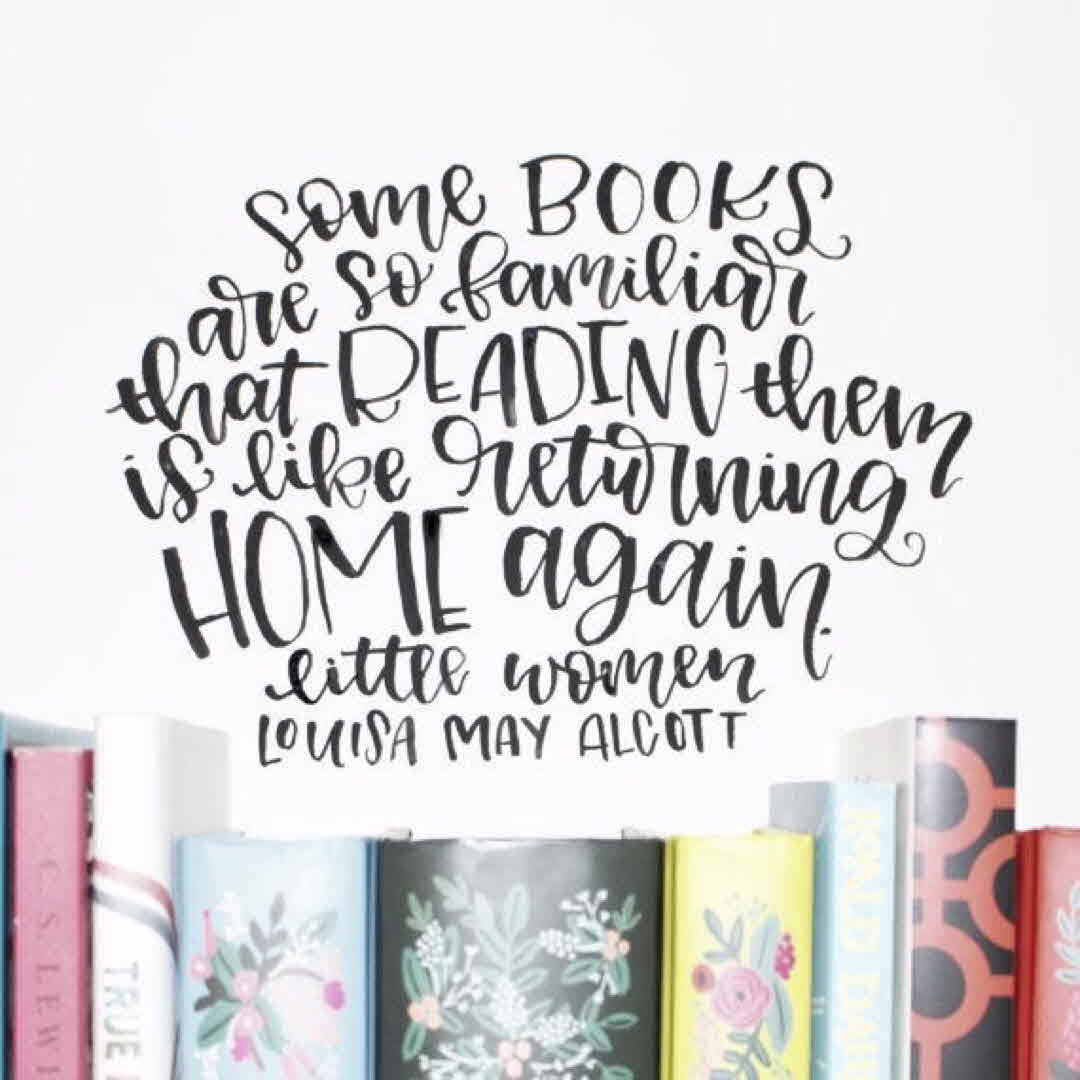 some BOOKS
are so familiar
that READING them
is like returning
HOME again.
little women
LOUISA MAY ALCOTT
C.S. LEWI
TRUE